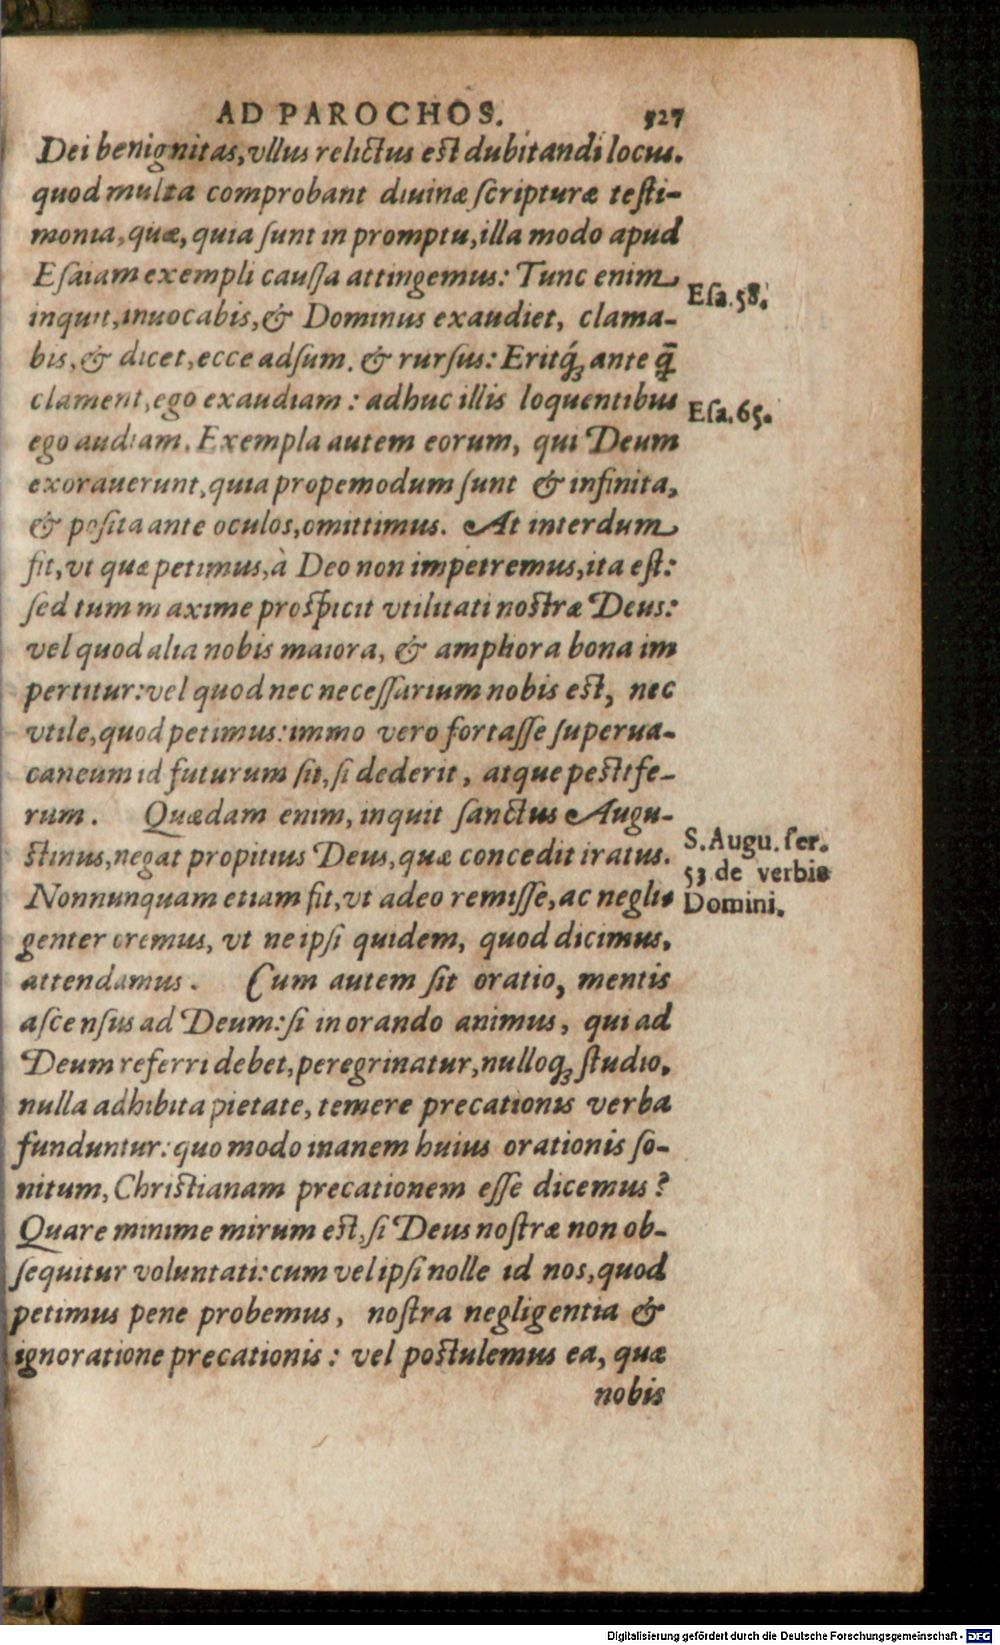 AD PAROCHOS. 527
Dei benignitas, vllus relictus est dubitandi locus.
quod multa comprobant diuinæ ſcripturæ teſti-
monia, quæ, quia ſunt in promptu, illa modo apud
Eſaiam exempli cauſſa attingemus: Tunc enim
Eſa. 58.
inquit, inuocabis, & Dominus exaudiet, clama-
bis, & dicet, ecce adſum. & rurſus: Eritq́ꝫ ante q̄
clament, ego exaudiam: adhuc illis loquentibus
Eſa. 65.
ego audiam. Exempla autem eorum, qui Deum
exorauerunt, quia propemodum ſunt & infinita,
& poſita ante oculos, omittimus. At interdum
fit, vt quæ petimus, à Deo non impetremus, ita eſt:
ſed tum maxime proſpicit vtilitati noſtræ Deus:
vel quod alia nobis maiora, & ampliora bona im
pertitur: vel quod nec neceſſarium nobis eſt, nec
vtile, quod petimus: immo vero fortaſſe ſuperua-
caneum id futurum ſit, ſi dederit, atque peſtife-
rum. Quædam enim, inquit ſanctus Augu-
S. Augu. ſer.
ſtinus, negat propitius Deus, quæ concedit iratus.
53 de verbis
Nonnunquam etiam fit, vt adeo remiſſe, ac negli-
Domini.
genter oremus, vt ne ipſi quidem, quod dicimus,
attendamus. Cum autem ſit oratio, mentis
aſcenſus ad Deum: ſi in orando animus, qui ad
Deum referri debet, peregrinatur, nulloqꝫ ſtudio,
nulla adhibita pietate, temere precationis verba
funduntur: quo modo inanem huius orationis ſo-
nitum, Chriſtianam precationem eſſe dicemus?
Quare minime mirum eſt, ſi Deus noſtræ non ob-
ſequitur voluntati: cum vel ipſi nolle id nos, quod
petimus pene probemus, noſtra negligentia &
ignoratione precationis: vel poſtulemus ea, quæ
nobis
Digitalisierung gefördert durch die Deutsche Forschungsgemeinschaft - DFG